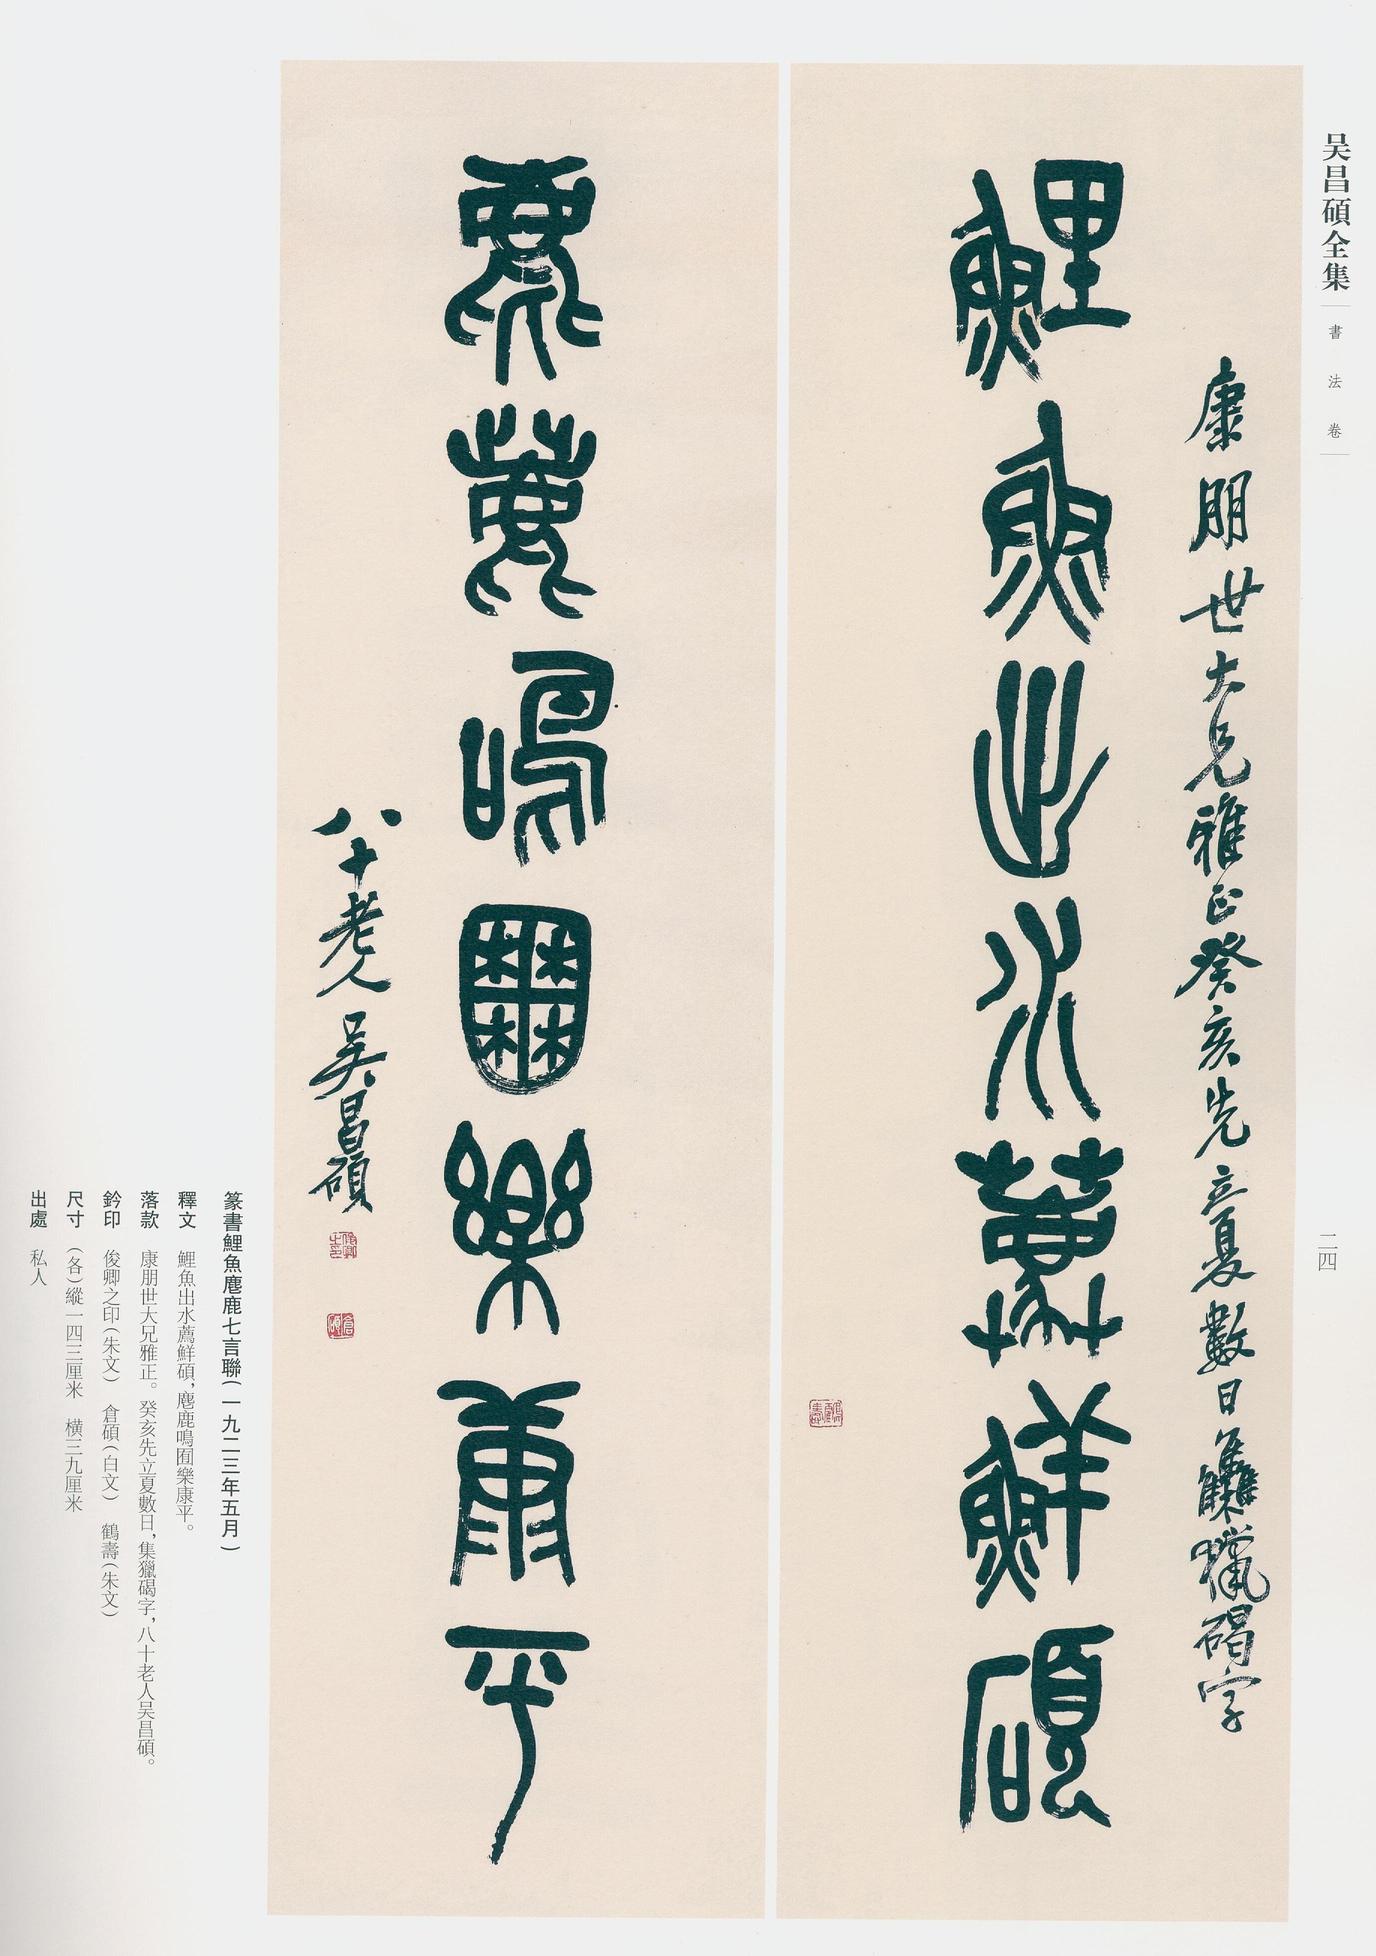 吴昌碩全集
書法卷
二四
康朋世大兄雅正癸亥先立夏數日集獵碣字
鯉魚出水薦鮮碩
麀鹿鳴囿樂康平
八十老人吴昌碩
俊卿之印
倉碩
鶴壽
篆書鯉魚麀鹿七言聯(一九二三年五月)
釋文 鯉魚出水薦鮮碩，麀鹿鳴囿樂康平。
落款 康朋世大兄雅正。癸亥先立夏數日，集獵碣字，八十老人吴昌碩。
鈐印 俊卿之印(朱文) 倉碩(白文) 鶴壽(朱文)
尺寸 (各)縱一四三厘米 橫三九厘米
出處 私人